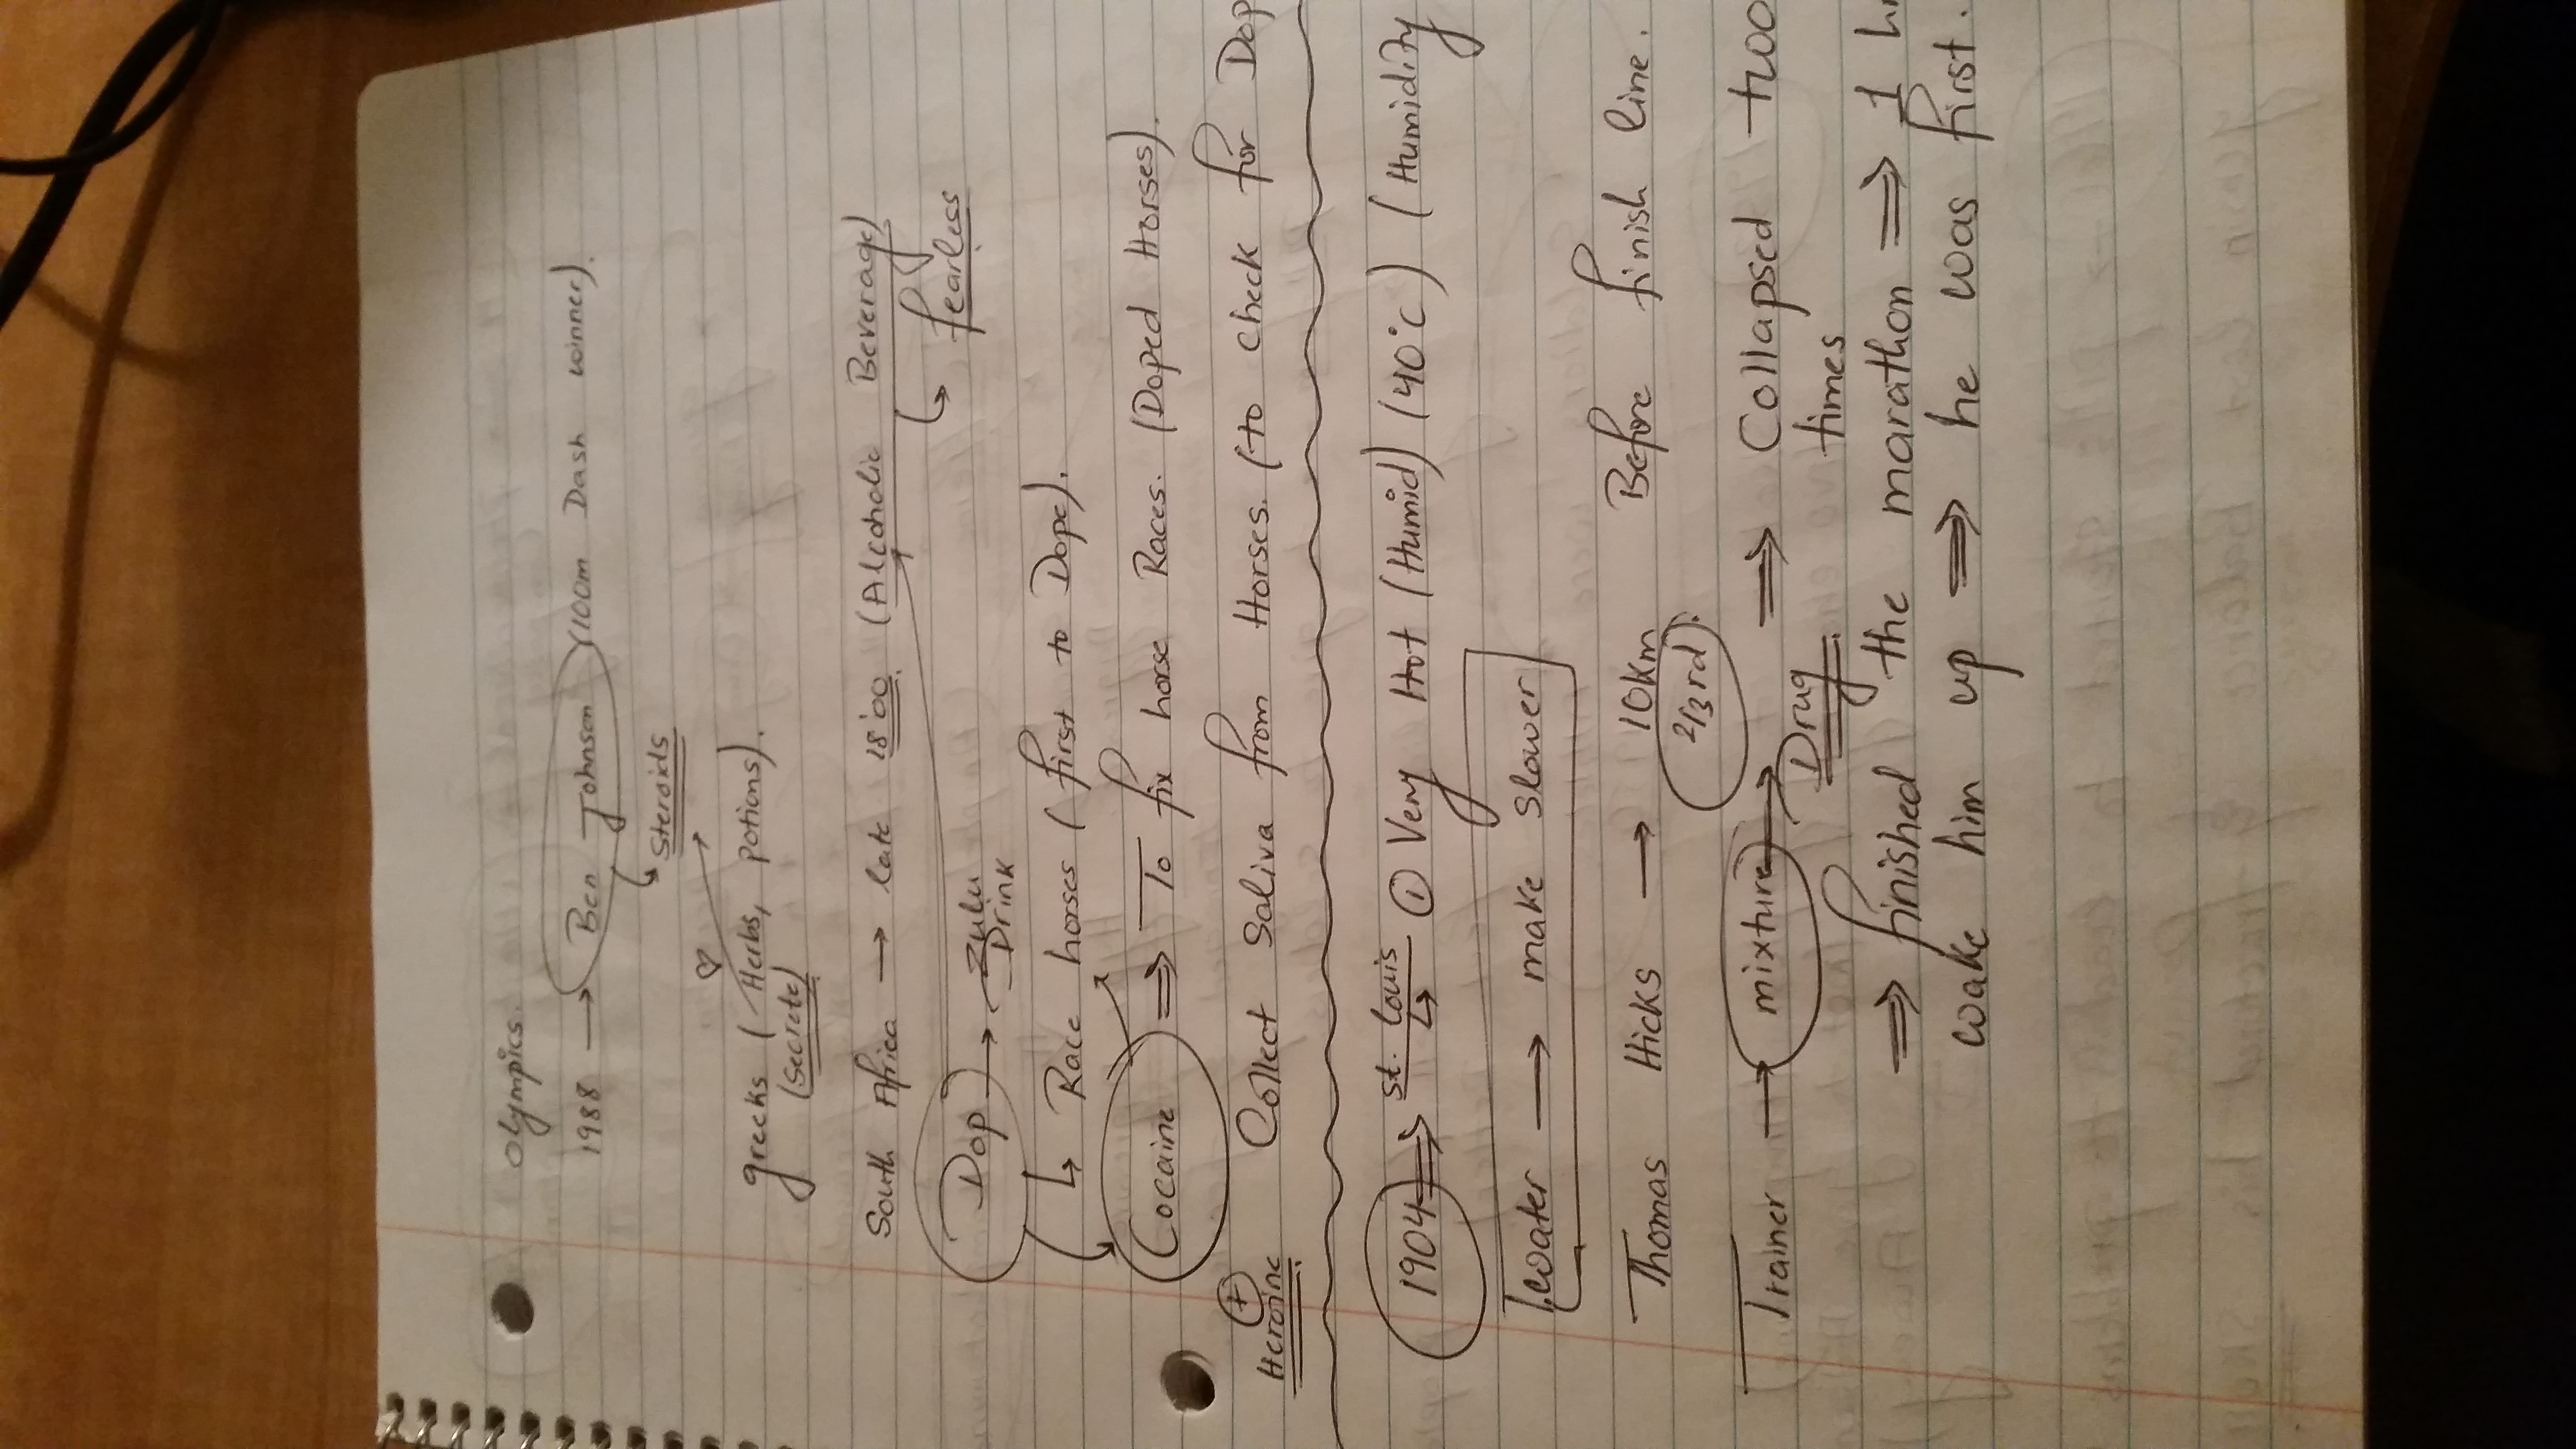 Olympics.
1988 → Ben Johnson (100m Dash winner).
↳ Steroids
greeks (Herbs, potions).
(Secrete)
South Africa → late 18'00 (Alcoholic Beverage)
↳ fearless
Dop → Zulu
Drink
↳ Race horses (first to Dope).
Cocaine ⇒ To fix horse Races. (Doped Horses).
+
Heroine
Collect Saliva from Horses. (to check for Dop
1904 ⇒ St. Louis ① Very Hot (Humid) (40°C) (Humidity
Water → make slower
Thomas Hicks → 10km Before finish line.
2/3rd).
Trainer → mixture → Drug ⇒ Collapsed two
times
⇒ finished the marathon ⇒ 1 h
wake him up ⇒ he was first.